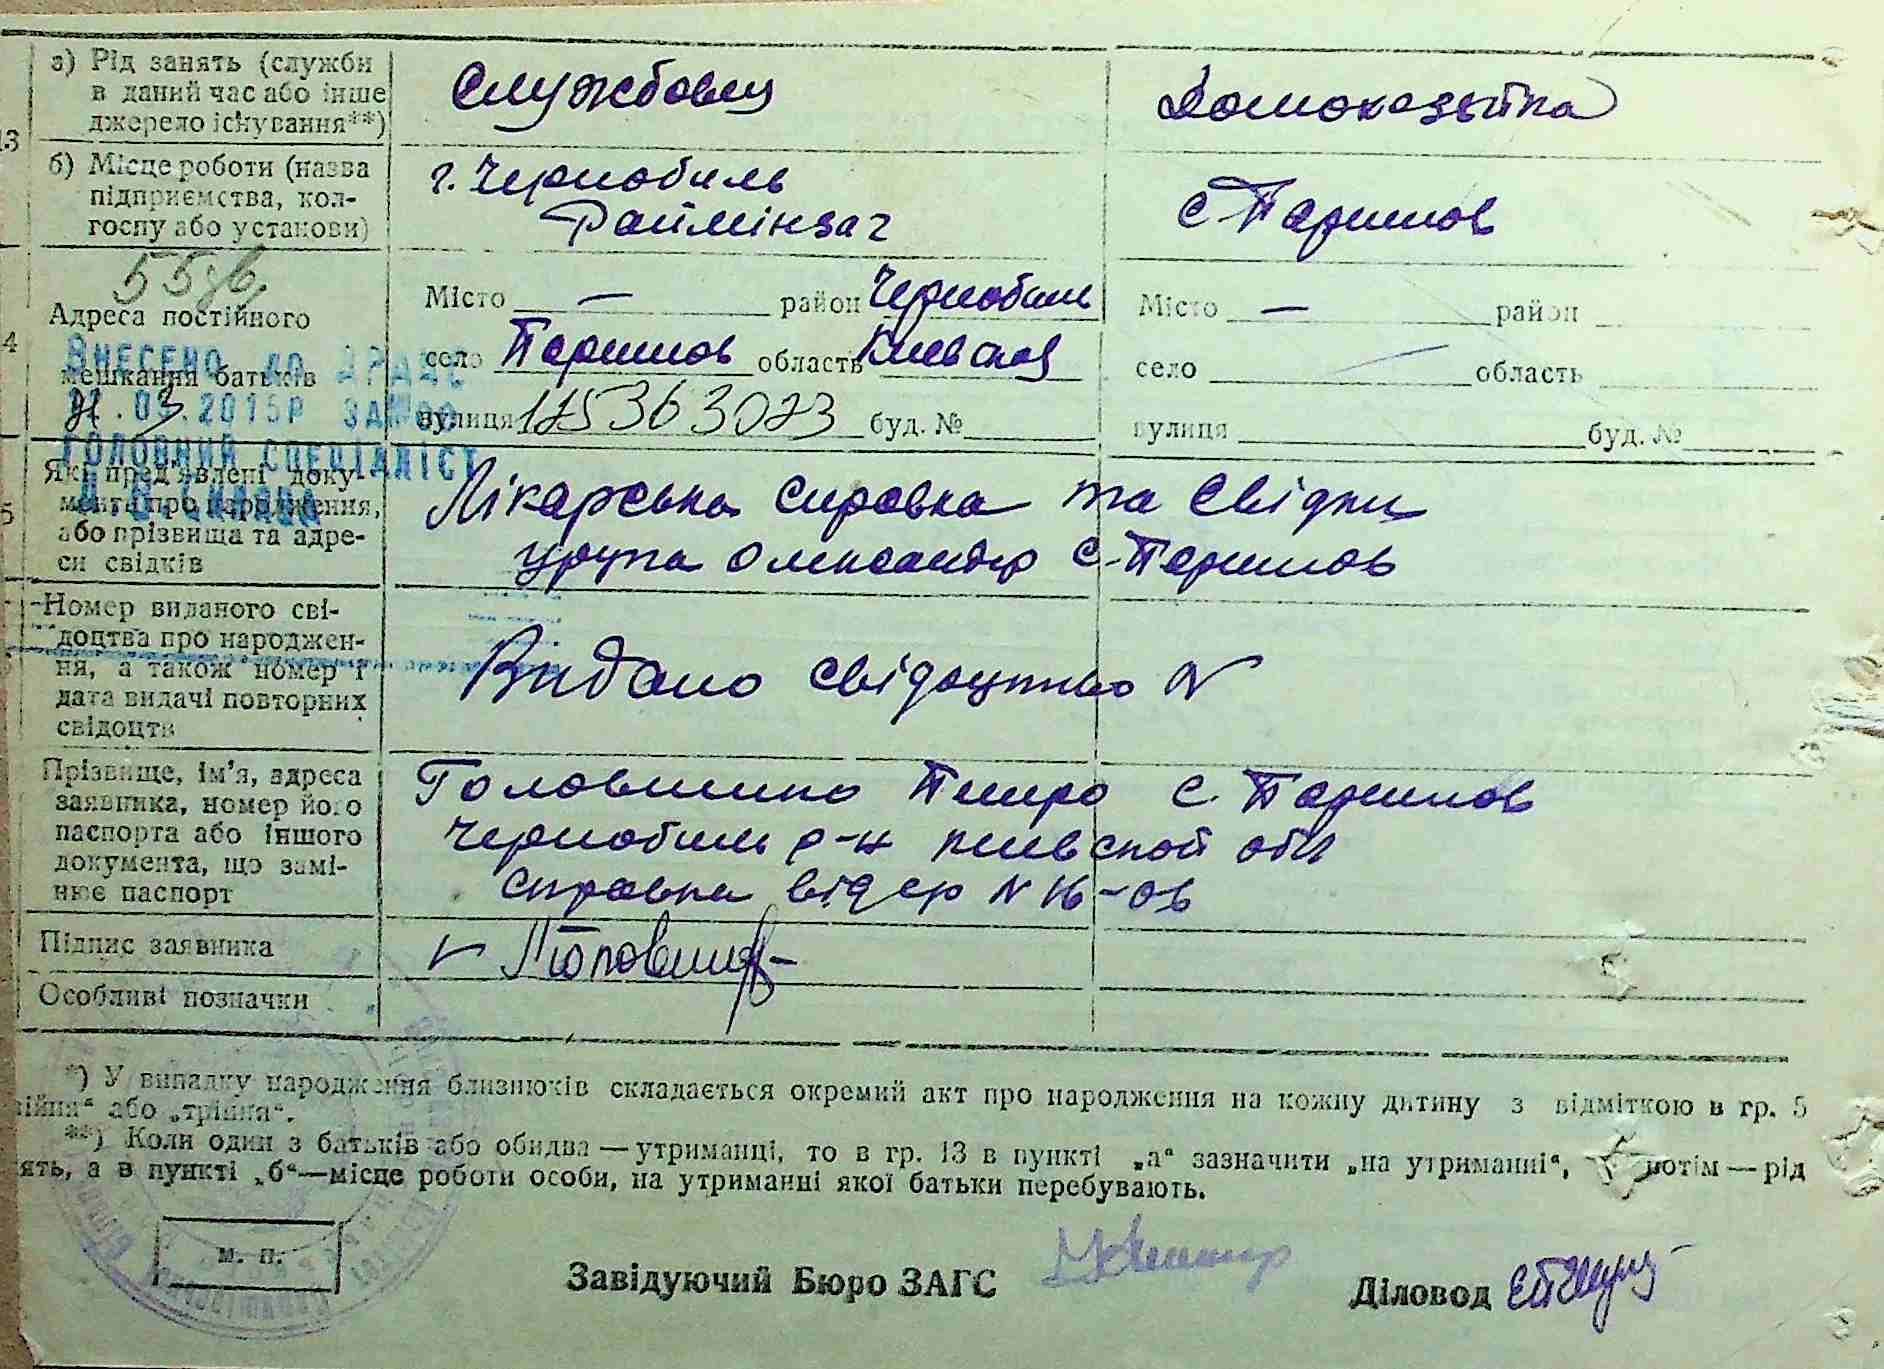 13
а) Рід занять (служби
в даний час або інше
джерело існування**)
Службовец
Домохазяйка
б) Місце роботи (назва
підприємства, кол-
госпу або установи)
г. Чернобиль
Раймінзаг
с Паришов
4
Адреса постійного
мешкання батьків
Місто — район Чернобиль
село Паришов область Киевской
вулиця 175363073 буд. №
Місто — район
село область
вулиця буд. №
ВНЕСЕНО до ДРАЦС
.03.2015р ЗА №00
ГОЛОВНИЙ СПЕЦІАЛІСТ
5
Які пред'явлені доку-
менти про народження,
або прізвища та адре-
си свідків
Лікарська справка та свідки
Олександр с. Паришов
Номер виданого сві-
доцтва про народжен-
ня, а також номер і
дата видачі повторних
свідоцтв
Видано свідоцтво N
Прізвище, ім'я, адреса
заявника, номер його
паспорта або іншого
документа, що замі-
нює паспорт
Головшино с. Паришов
Чернобиль р-н киевской обл
справка від N 16-06
Підпис заявника
Особливі позначки
*) У випадку народження близнюків складається окремий акт про народження на кожну дитину з відміткою в гр. 5
війня" або „трійня".
**) Коли один з батьків або обидва — утриманці, то в гр. 13 в пункті „а" зазначити „на утриманні", потім — рід
ять, а в пункті „б"—місце роботи особи, на утриманні якої батьки перебувають.
м. п.
Завідуючий Бюро ЗАГС
Діловод